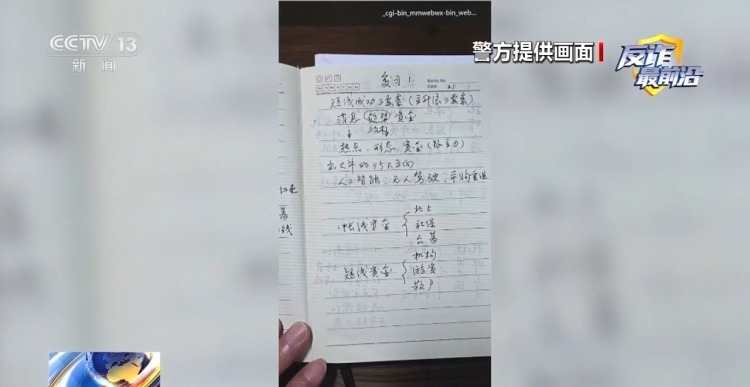 CCTV 13
新闻
_cgi-bin_mmwebwx-bin_web...
警方提供画面
反诈
最前沿
复习1
Memo No.
Date
短线成功三要素(主升浪三要素)
消息 趋势 资金
热点、形态、资金(跟主力)
出大牛的3个大方向
人工智能、无人驾驶、并购重组
中长线资金
北上
社保
公募
短线资金
机构
游资
散户